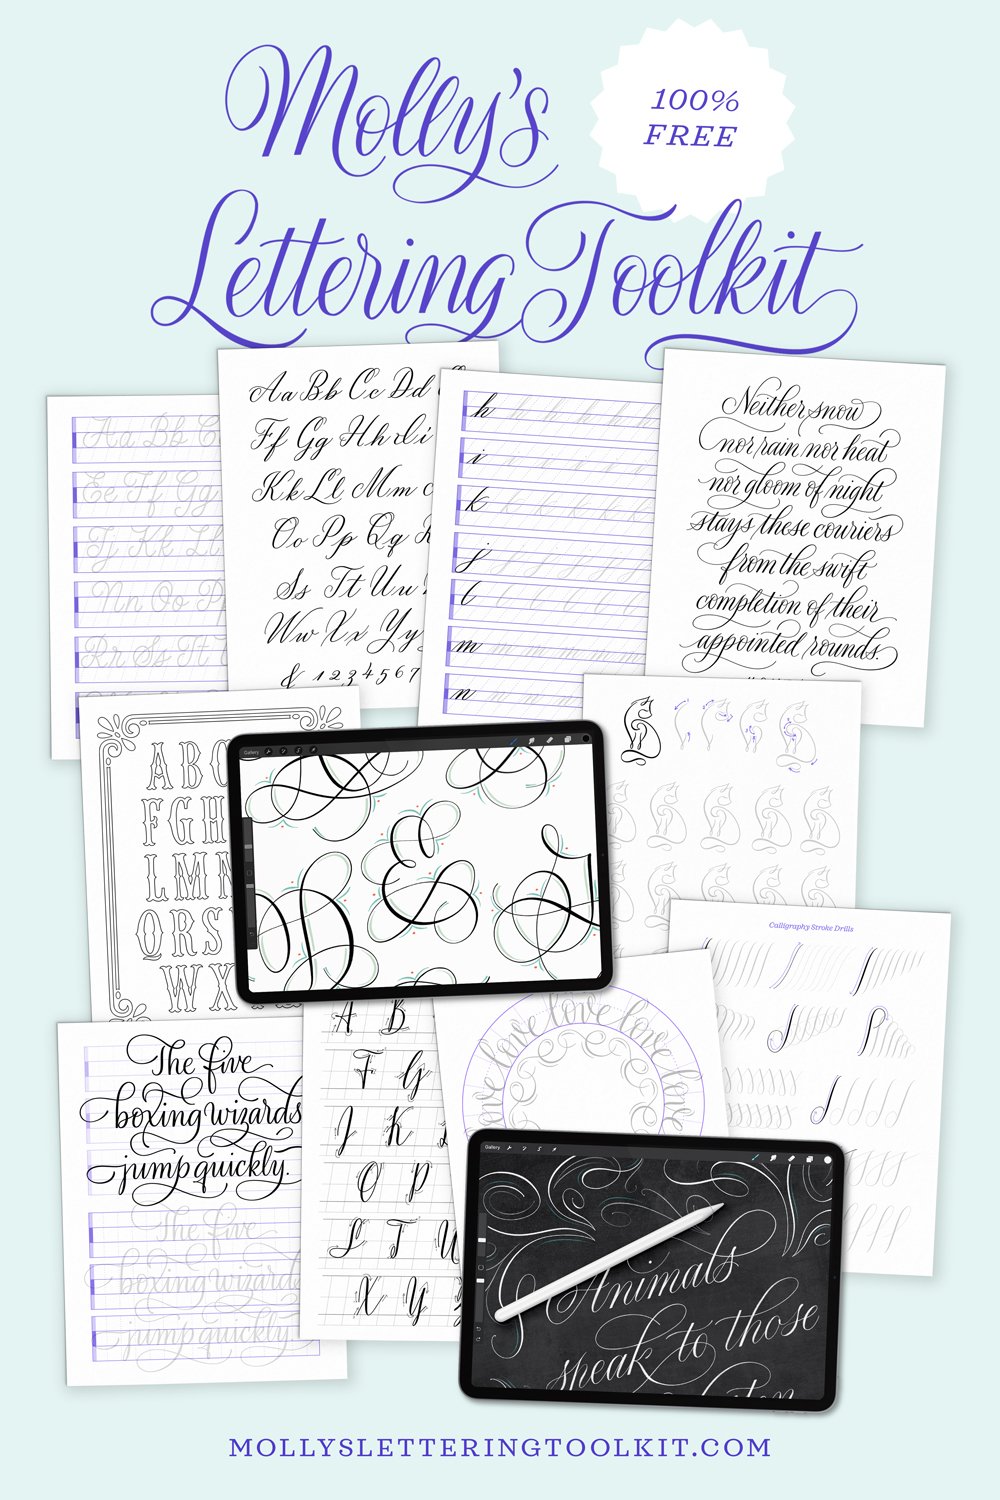 Molly's
100%
FREE
Lettering Toolkit
Aa Bb
Ee Ff Gg
Kk Ll
Nn Oo
Rr Ss Tt
Aa Bb Cc Dd
Ff Gg Hh Ii
Kk Ll Mm
Oo Pp Qq R
Ss Tt Uu
Ww Xx Yy
& 1 2 3 4 5 6 7
h
i
k
j
l
m
n
Neither snow
nor rain nor heat
nor gloom of night
stays these couriers
from the swift
completion of their
appointed rounds.
A B C
F G H
L M N
Q R S
W X
Gallery
&
Calligraphy Stroke Drills
The five
boxing wizards
jump quickly.
The five
boxing wizards
jump quickly.
A B
F G
J K
O P
L T U
X Y
love love love love love
Gallery
Animals
speak to those
listen
MOLLYSLETTERINGTOOLKIT.COM